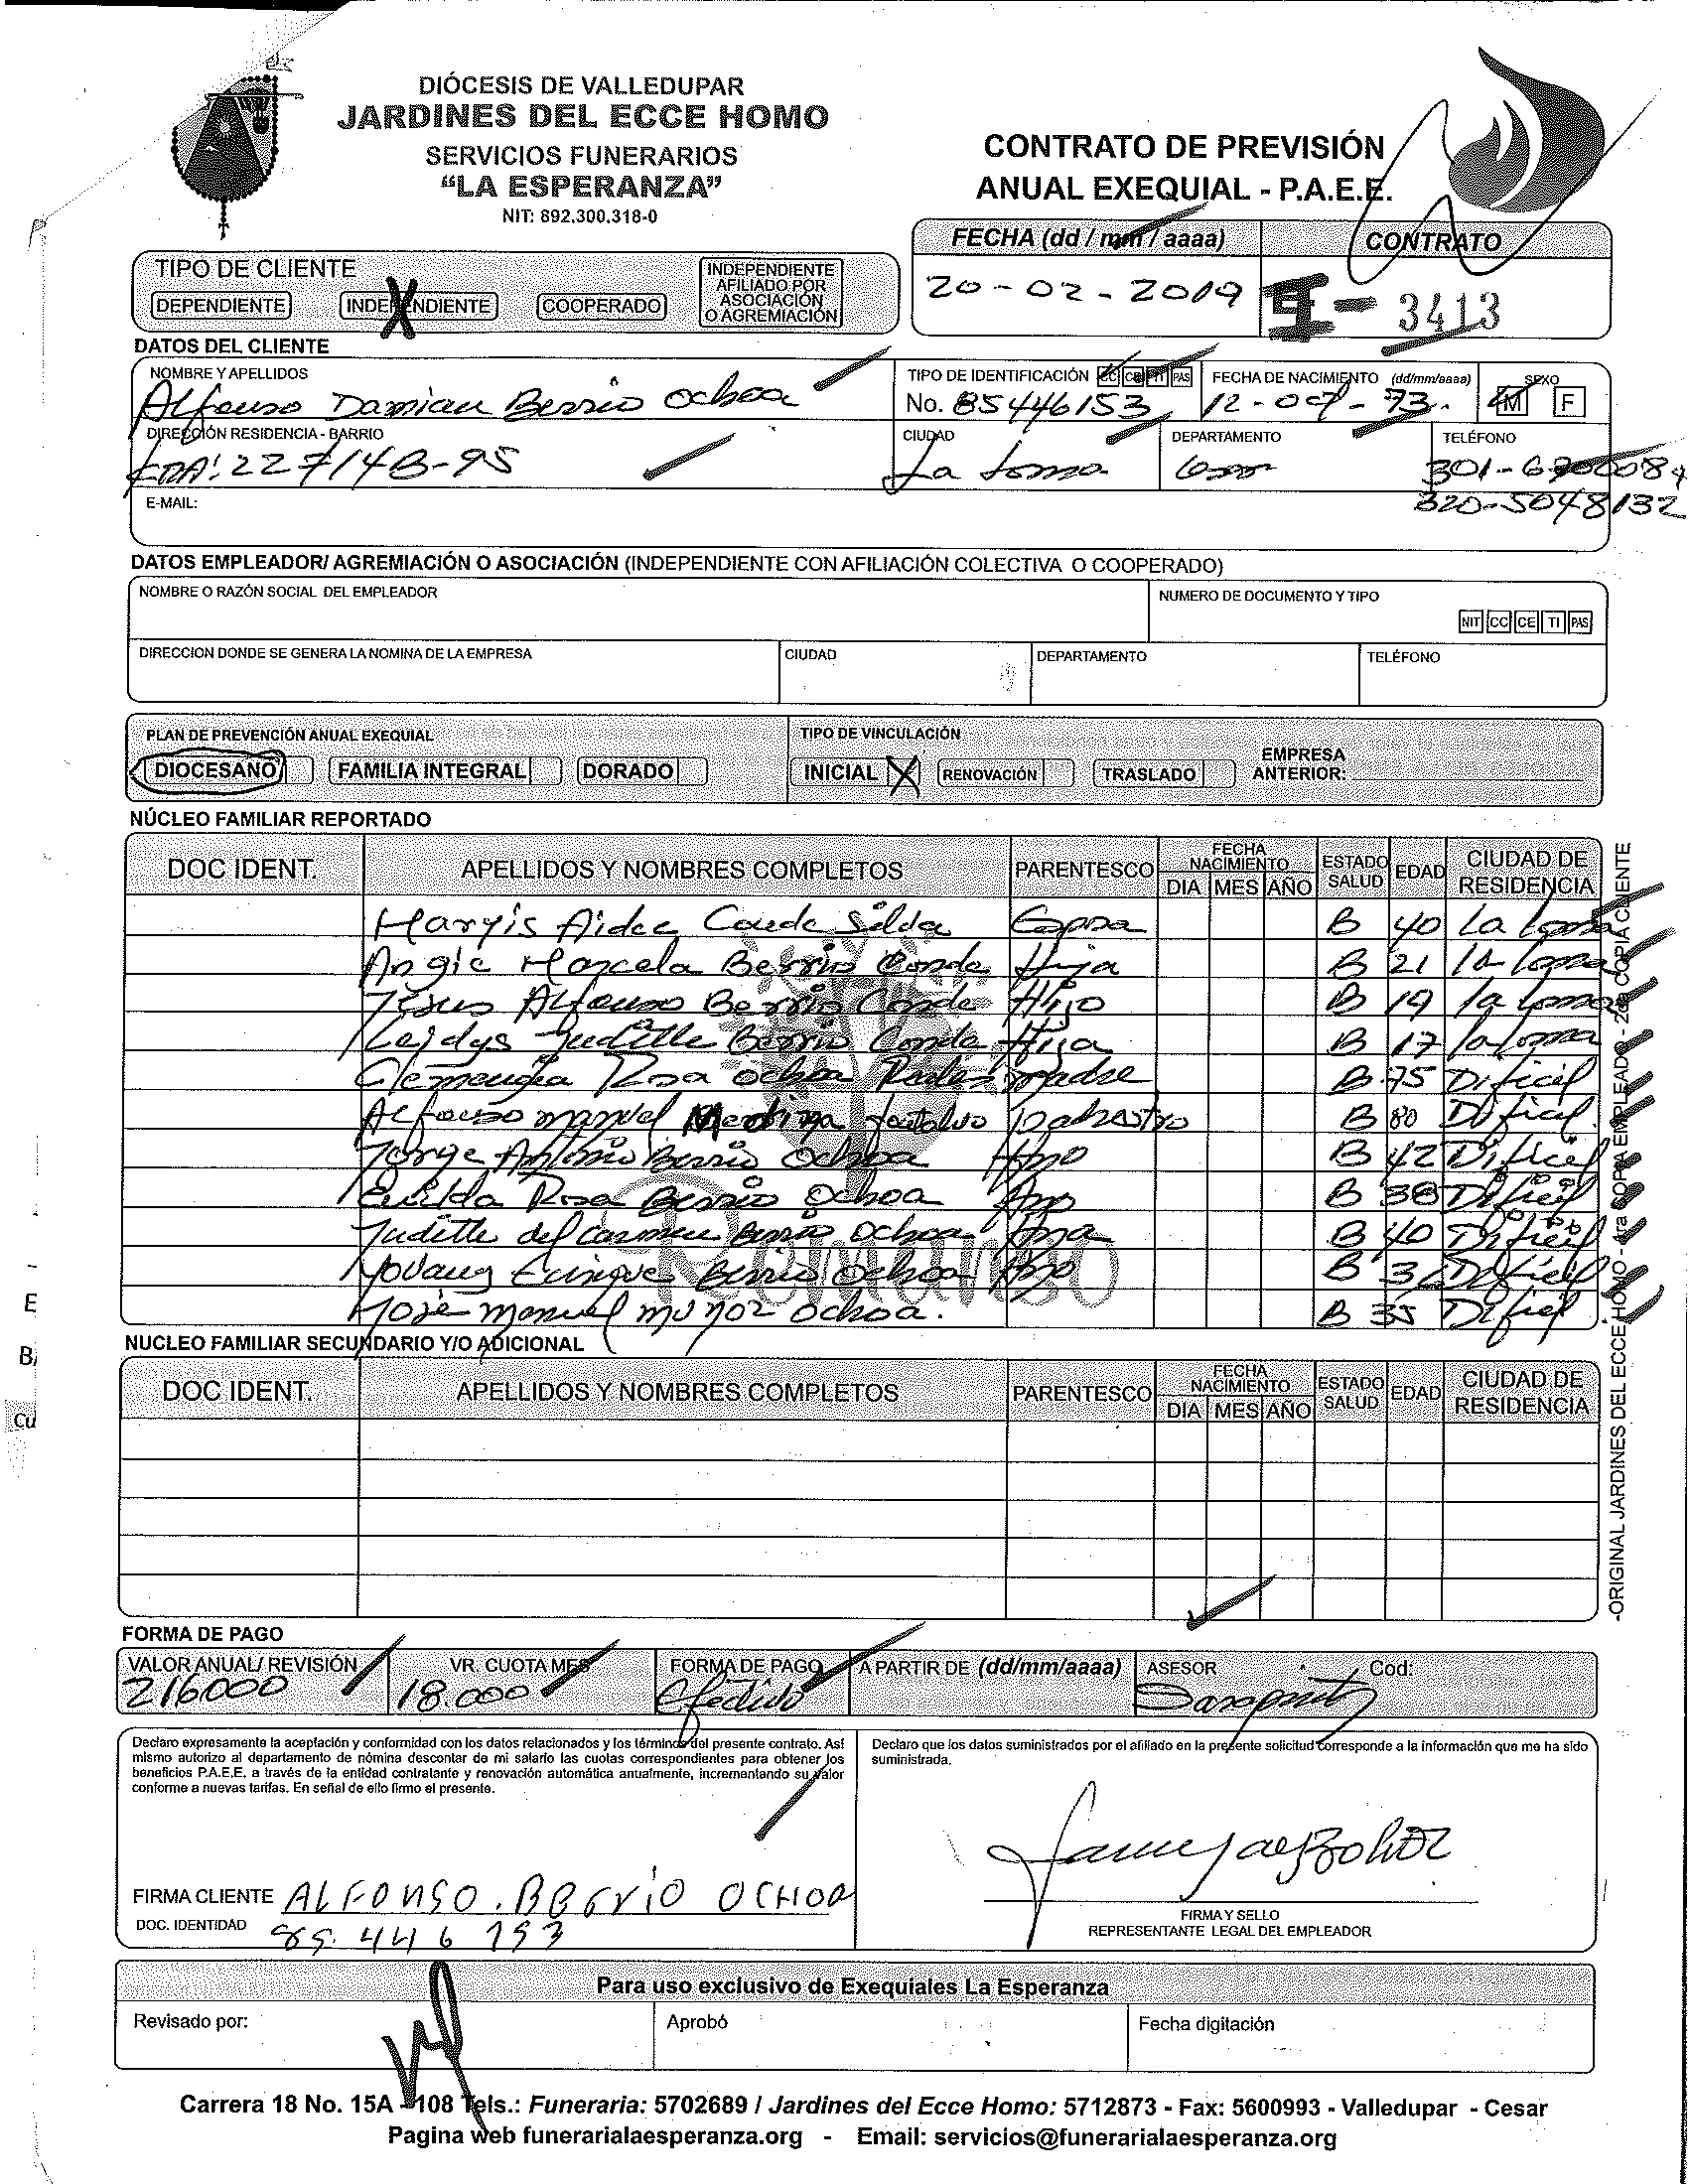 DIÓCESIS DE VALLEDUPAR
JARDINES DEL ECCE HOMO
SERVICIOS FUNERARIOS
“LA ESPERANZA”
NIT: 892.300.318-0
CONTRATO DE PREVISIÓN
ANUAL EXEQUIAL - P.A.E.E.
FECHA (dd / mm / aaaa) CONTRATO
20-02-2019 I- 3413
TIPO DE CLIENTE
DEPENDIENTE INDEPENDIENTE COOPERADO INDEPENDIENTE AFILIADO POR ASOCIACIÓN O AGREMIACIÓN
DATOS DEL CLIENTE
NOMBRE Y APELLIDOS TIPO DE IDENTIFICACIÓN CC CE TI PAS FECHA DE NACIMIENTO (dd/mm/aaaa) SEXO
Alfonso Damian Berrio Ochoa No. 85446153 12-oct-73. M F
DIRECCIÓN RESIDENCIA - BARRIO CIUDAD DEPARTAMENTO TELÉFONO
CRA: 22 #14B-95 La Loma Cesar
320-5048132
E-MAIL:
DATOS EMPLEADOR/ AGREMIACIÓN O ASOCIACIÓN (INDEPENDIENTE CON AFILIACIÓN COLECTIVA O COOPERADO)
NOMBRE O RAZÓN SOCIAL DEL EMPLEADOR NUMERO DE DOCUMENTO Y TIPO
NIT CC CE TI PAS
DIRECCION DONDE SE GENERA LA NOMINA DE LA EMPRESA CIUDAD DEPARTAMENTO TELÉFONO
PLAN DE PREVENCIÓN ANUAL EXEQUIAL TIPO DE VINCULACIÓN
DIOCESANO FAMILIA INTEGRAL DORADO INICIAL X RENOVACIÓN TRASLADO EMPRESA ANTERIOR:
NÚCLEO FAMILIAR REPORTADO
DOC IDENT. APELLIDOS Y NOMBRES COMPLETOS PARENTESCO FECHA NACIMIENTO DIA MES AÑO ESTADO SALUD EDAD CIUDAD DE RESIDENCIA
Maryis Aidee Conde Silda Esposa B 40 La Loma
Angie Marcela Berrio Conde Hija B 21 la loma
Jesus Alfonso Berrio Conde Hijo B 19 la loma
Leidys Judithe Berrio Conde Hija B 17 la loma
Rosa Ochoa madre B 75 Dificil
Alfonso manuel Medina padrastro B 80 Dificil
Jorge Antonio Berrio Ochoa Hno B 42 Dificil
Rosa Berrio Ochoa B 38 Dificil
Judithe del Carmen Berrio Ochoa Hna B 40 Dificil
Berrio Ochoa Hno B Dificil
Jose manuel munoz ochoa. B 35 Dificil
Remanso
NUCLEO FAMILIAR SECUNDARIO Y/O ADICIONAL
DOC IDENT. APELLIDOS Y NOMBRES COMPLETOS PARENTESCO FECHA NACIMIENTO DIA MES AÑO ESTADO SALUD EDAD CIUDAD DE RESIDENCIA
-ORIGINAL JARDINES DEL ECCE HOMO - 1ra COPIA EMPLEADO - 2da COPIA CLIENTE
FORMA DE PAGO
VALOR ANUAL/ REVISIÓN VR. CUOTA MES FORMA DE PAGO A PARTIR DE (dd/mm/aaaa) ASESOR Cod:
216000 18.000 Efectivo
Declaro expresamente la aceptación y conformidad con los datos relacionados y los términos del presente contrato. Así
mismo autorizo al departamento de nómina descontar de mi salario las cuotas correspondientes para obtener los
beneficios P.A.E.E. a través de la entidad contratante y renovación automática anualmente, incrementando su valor
conforme a nuevas tarifas. En señal de ello firmo el presente.
Declaro que los datos suministrados por el afiliado en la presente solicitud corresponde a la información que me ha sido
suministrada.
FIRMA CLIENTE ALFONSO. BERRIO OCHOA
DOC. IDENTIDAD 85.446 153
FIRMA Y SELLO
REPRESENTANTE LEGAL DEL EMPLEADOR
Para uso exclusivo de Exequiales La Esperanza
Revisado por: Aprobó Fecha digitación
Carrera 18 No. 15A - 108 Tels.: Funeraria: 5702689 / Jardines del Ecce Homo: 5712873 - Fax: 5600993 - Valledupar - Cesar
Pagina web funerarialaesperanza.org - Email: servicios@funerarialaesperanza.org